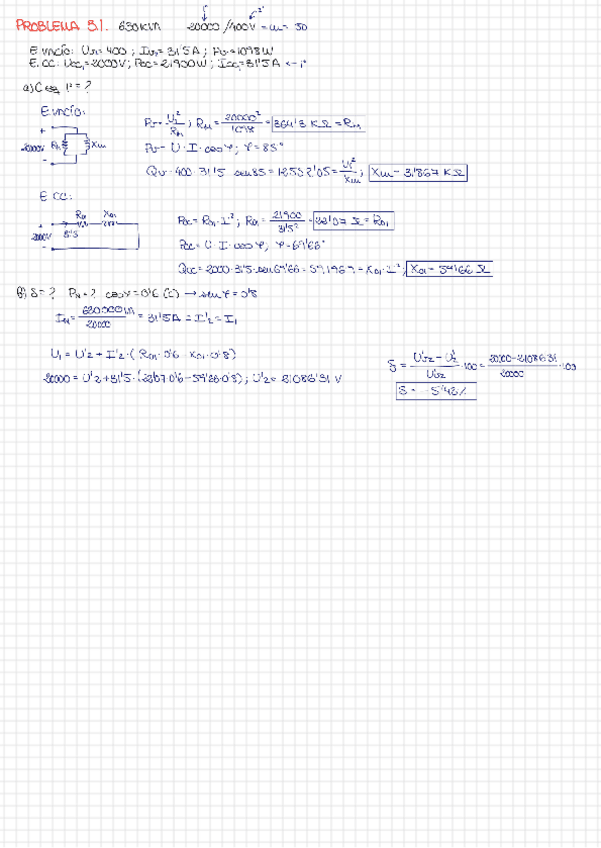 PROBLEMA 3.1. 630 KVA 20000/400V = m = 50
E. vacío: U₂₀= 400 ; I₂₀= 31'5A ; P₀= 1098 W
E. CC: Ucc₁= 2000V ; Pcc= 21900W ; Icc₁= 31'5A ← 1º
a) C eq 1º = ?
E. vacío:
+ 20000V - R Xm
P₀= U₁²/Rm ; Rm= 20000²/1098 = 364'3 KΩ = Rm
P₀= U·I·cos φ; φ= 85°
Q₀= 400·31'5·sen85 = 12552'05 = U₁²/Xm ; Xm= 31'867 KΩ
E CC:
+ 2000V - Rcc Xcc 31'5
Pcc= Rcc·I²; Rcc= 21900/31'5² = 22'07 Ω = Rcc₁
Pcc= U·I·cos φ, φ= 69'66°
Qcc= 2000·31'5·sen69'66 = 59,1969 = Xcc·I²; Xcc= 59'66 Ω
b) δ= ? P = ? cos φ= 0'6 (C) → sen φ= 0'8
I₁ₙ= 630000/20000 = 31'5A = I'₂ = I₁
U₁ = U'₂ + I'₂·(Rcc·0'6 - Xcc·0'8)
20000 = U'₂ + 31'5·(22'07·0'6 - 59'66·0'8) ; U'₂= 21086'31 V
δ= U'₀₂ - U'₂/U'₀₂ ·100 = 20000-21086'31/20000 ·100
δ= -5'43%